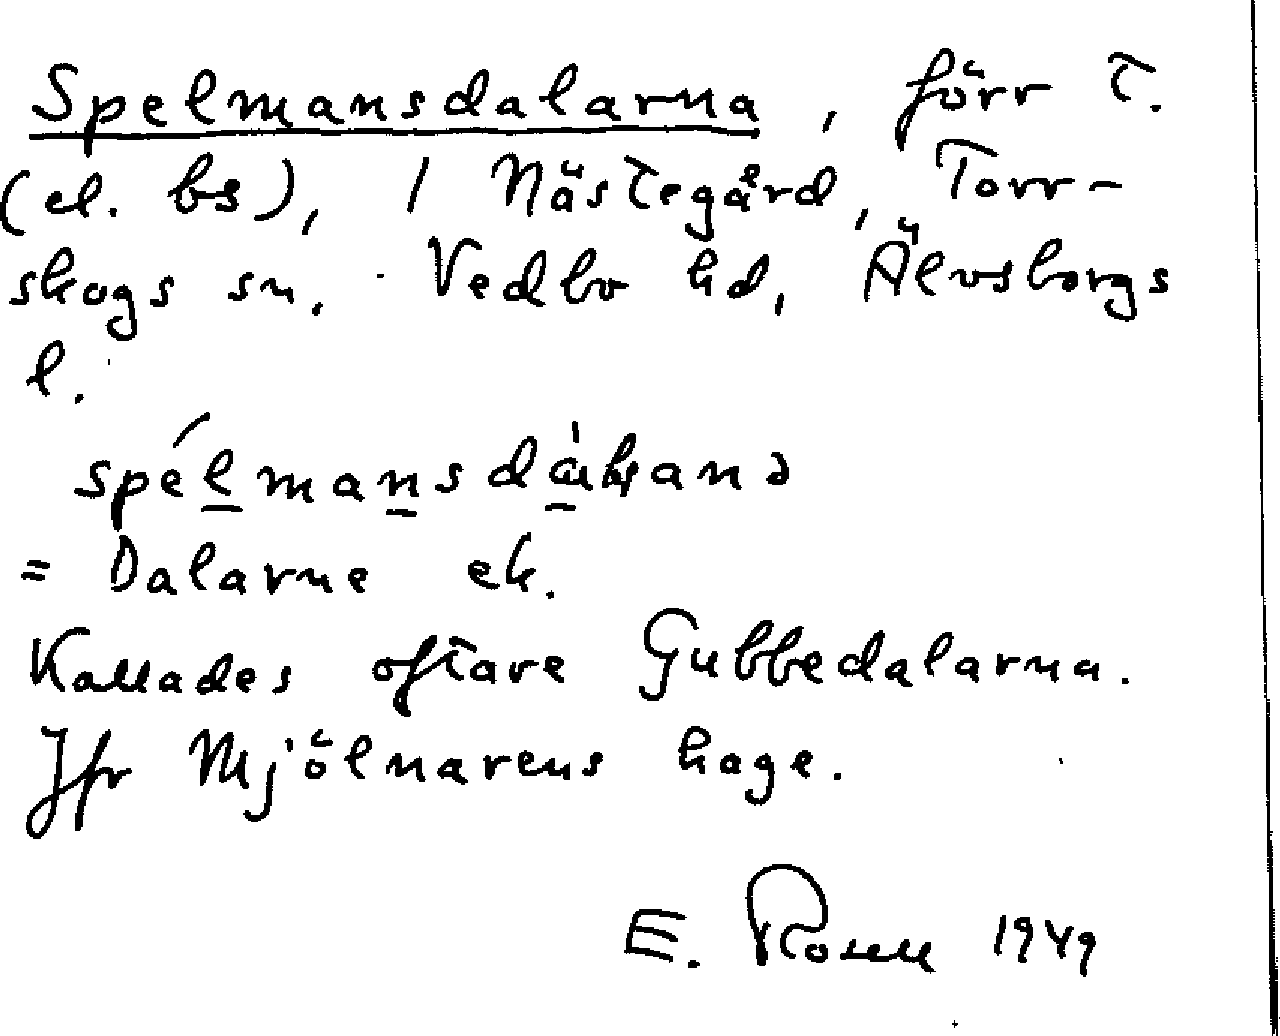 Spelmansdalarna, förr t.
(el. bs), 1 Nästegård, Torr-
skogs sn. Vedbo hd, Älvsborgs
l.
= Dalarne ek.
Kallades oftare Gubbedalarna.
Jfr Mjölnarens hage.
E. Rosell 1949